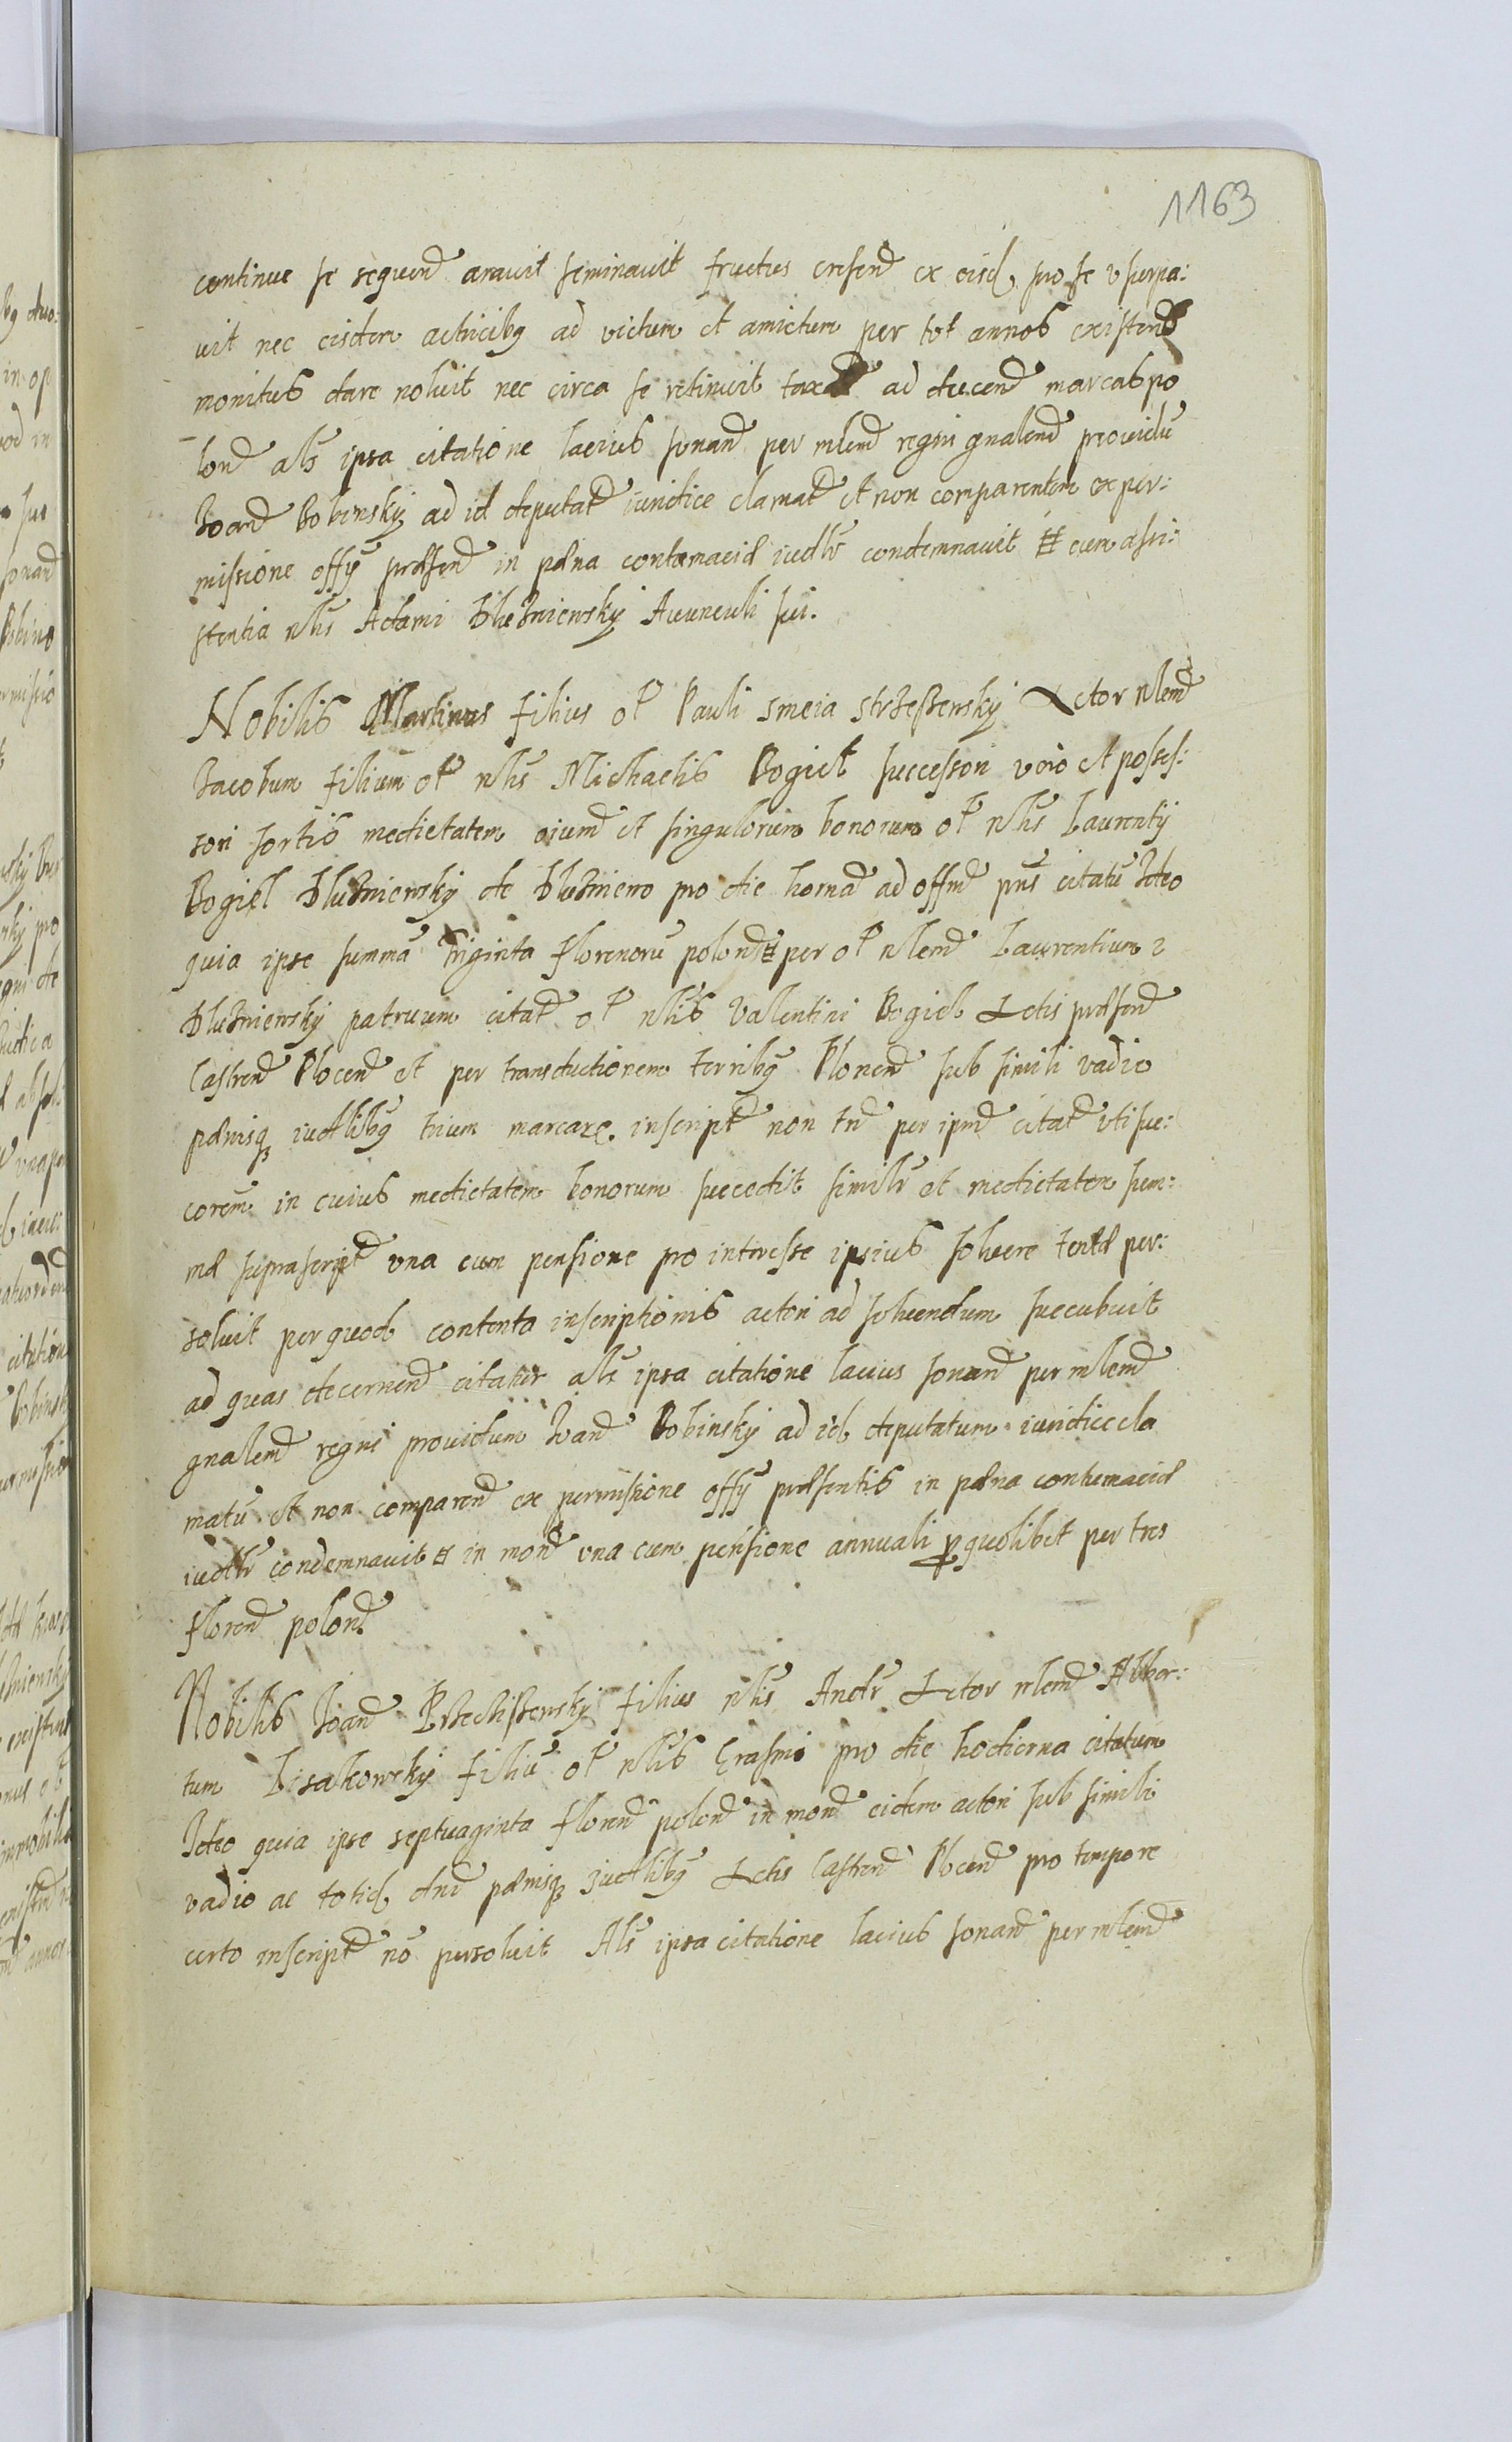 1163
continue se sequend arauit seminauit fructus cresend ex eisd, pro se vsurpa:
uit nec eisdem actricibq ad victum et amictum per tot annos existens
monitus dare noluit nec circa se retinuit taxad ad ducend marcas po
lond als ipsa citatione lacius sonand per mlend regni gnalend prouidu
Joand Bobinsky ad id deputatd iuridice clamatd et non comparentem ex per:
missione offy præsend in pæna contumaciæ iudlr condemnauit et cum assi:
stentia nlis Adami Dluzniewsky Auunculi sui.
Nobilis Martinus filius ol Pauli Smeia Strzeszewsky Actor nlend
Jacobum filium ol nlis Michaelis Bogiel successori vero et posses:
sori sortis medietatem oiumd et singulorum bonorum ol nlis Laurenty
Bogiel Dluzniewsky de Dluzniewo pro die hornad ad offmd pns citatu Ideo
quia ipse summa triginta florenoru polond per ol nlend Laurentium
Dluzniewsky patruum citatd ol nlis Valentini Bogiel Actis præsend
Castrend Plocend et per transductionem terribq Plonend sub simili vadio
pænisq iudlibq trium marcar. inscriptd non tnd per ipmd citatd vti suc:
corem in cuius medietatem bonorum succedit similr et medietatem sum:
mæ suprascriptd vna cum pensione pro interesse ipsius soluere tentæ per:
soluit per quod contenta inscriptionis actori ad soluendum succubuit
ad quas decernend citatur als ipsa citatione lacius sonand per mlend
gnalend regni prouidum Joand Bobinsky ad id deputatum iuridice cla
matu et non comparend ex permissione offy præsentis in pæna contumaciæ
iudlr condemnauit et in mond vna cum pensione annuali p quolibet per tres
florend polond
Nobilis Joand Brzechffewsky filius nlis Andr Actor nlend Alber:
tum Lisakowsky filiu ol nlis Erasmi pro die hodierna citatum
Ideo quia ipse septuaginta florend polond in mond eidem actori sub simili
vadio ac totid dnd pænisq iudlibq Actis Castrend Plocend pro tempore
certo inscriptd no persoluit Als ipsa citatione lacius sonand per mlend